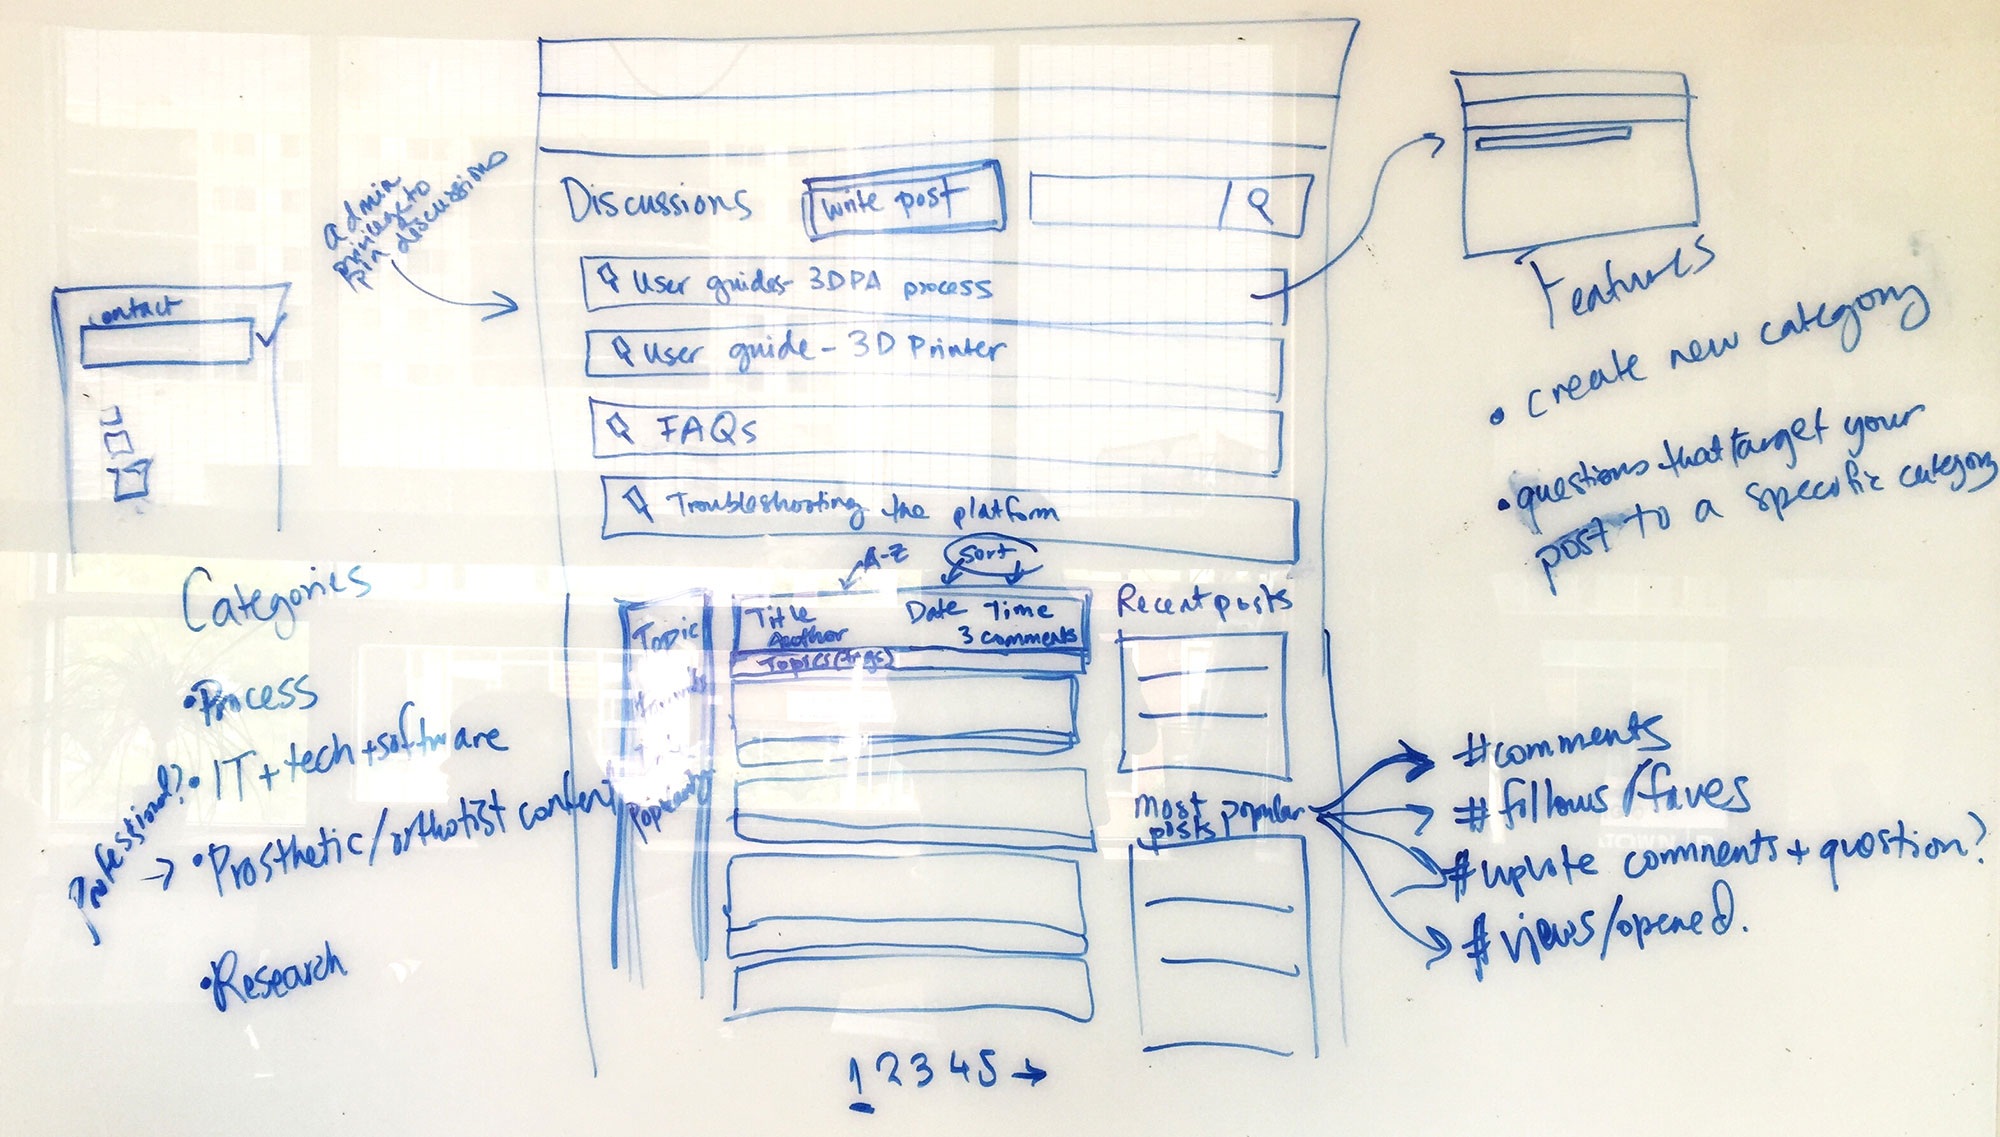 admin
privilege to
pin discussions
Discussions
Write post
User guides- 3DPA process
User guide - 3D Printer
FAQs
Troubleshooting the platform
A-Z
sort
contact
Categories
•Process
•IT+tech+software
Professional?
→ •Prosthetic/orthotist content
•Research
Topic
Popularity
Title
Author
Date Time
3 comments
Topics(tags)
Recent posts
most popular
posts
1 2 3 4 5 →
Features
• create new category
•questions that target your
post to a specific category
#comments
#follows/faves
#upvote comments+question?
#views/opened.